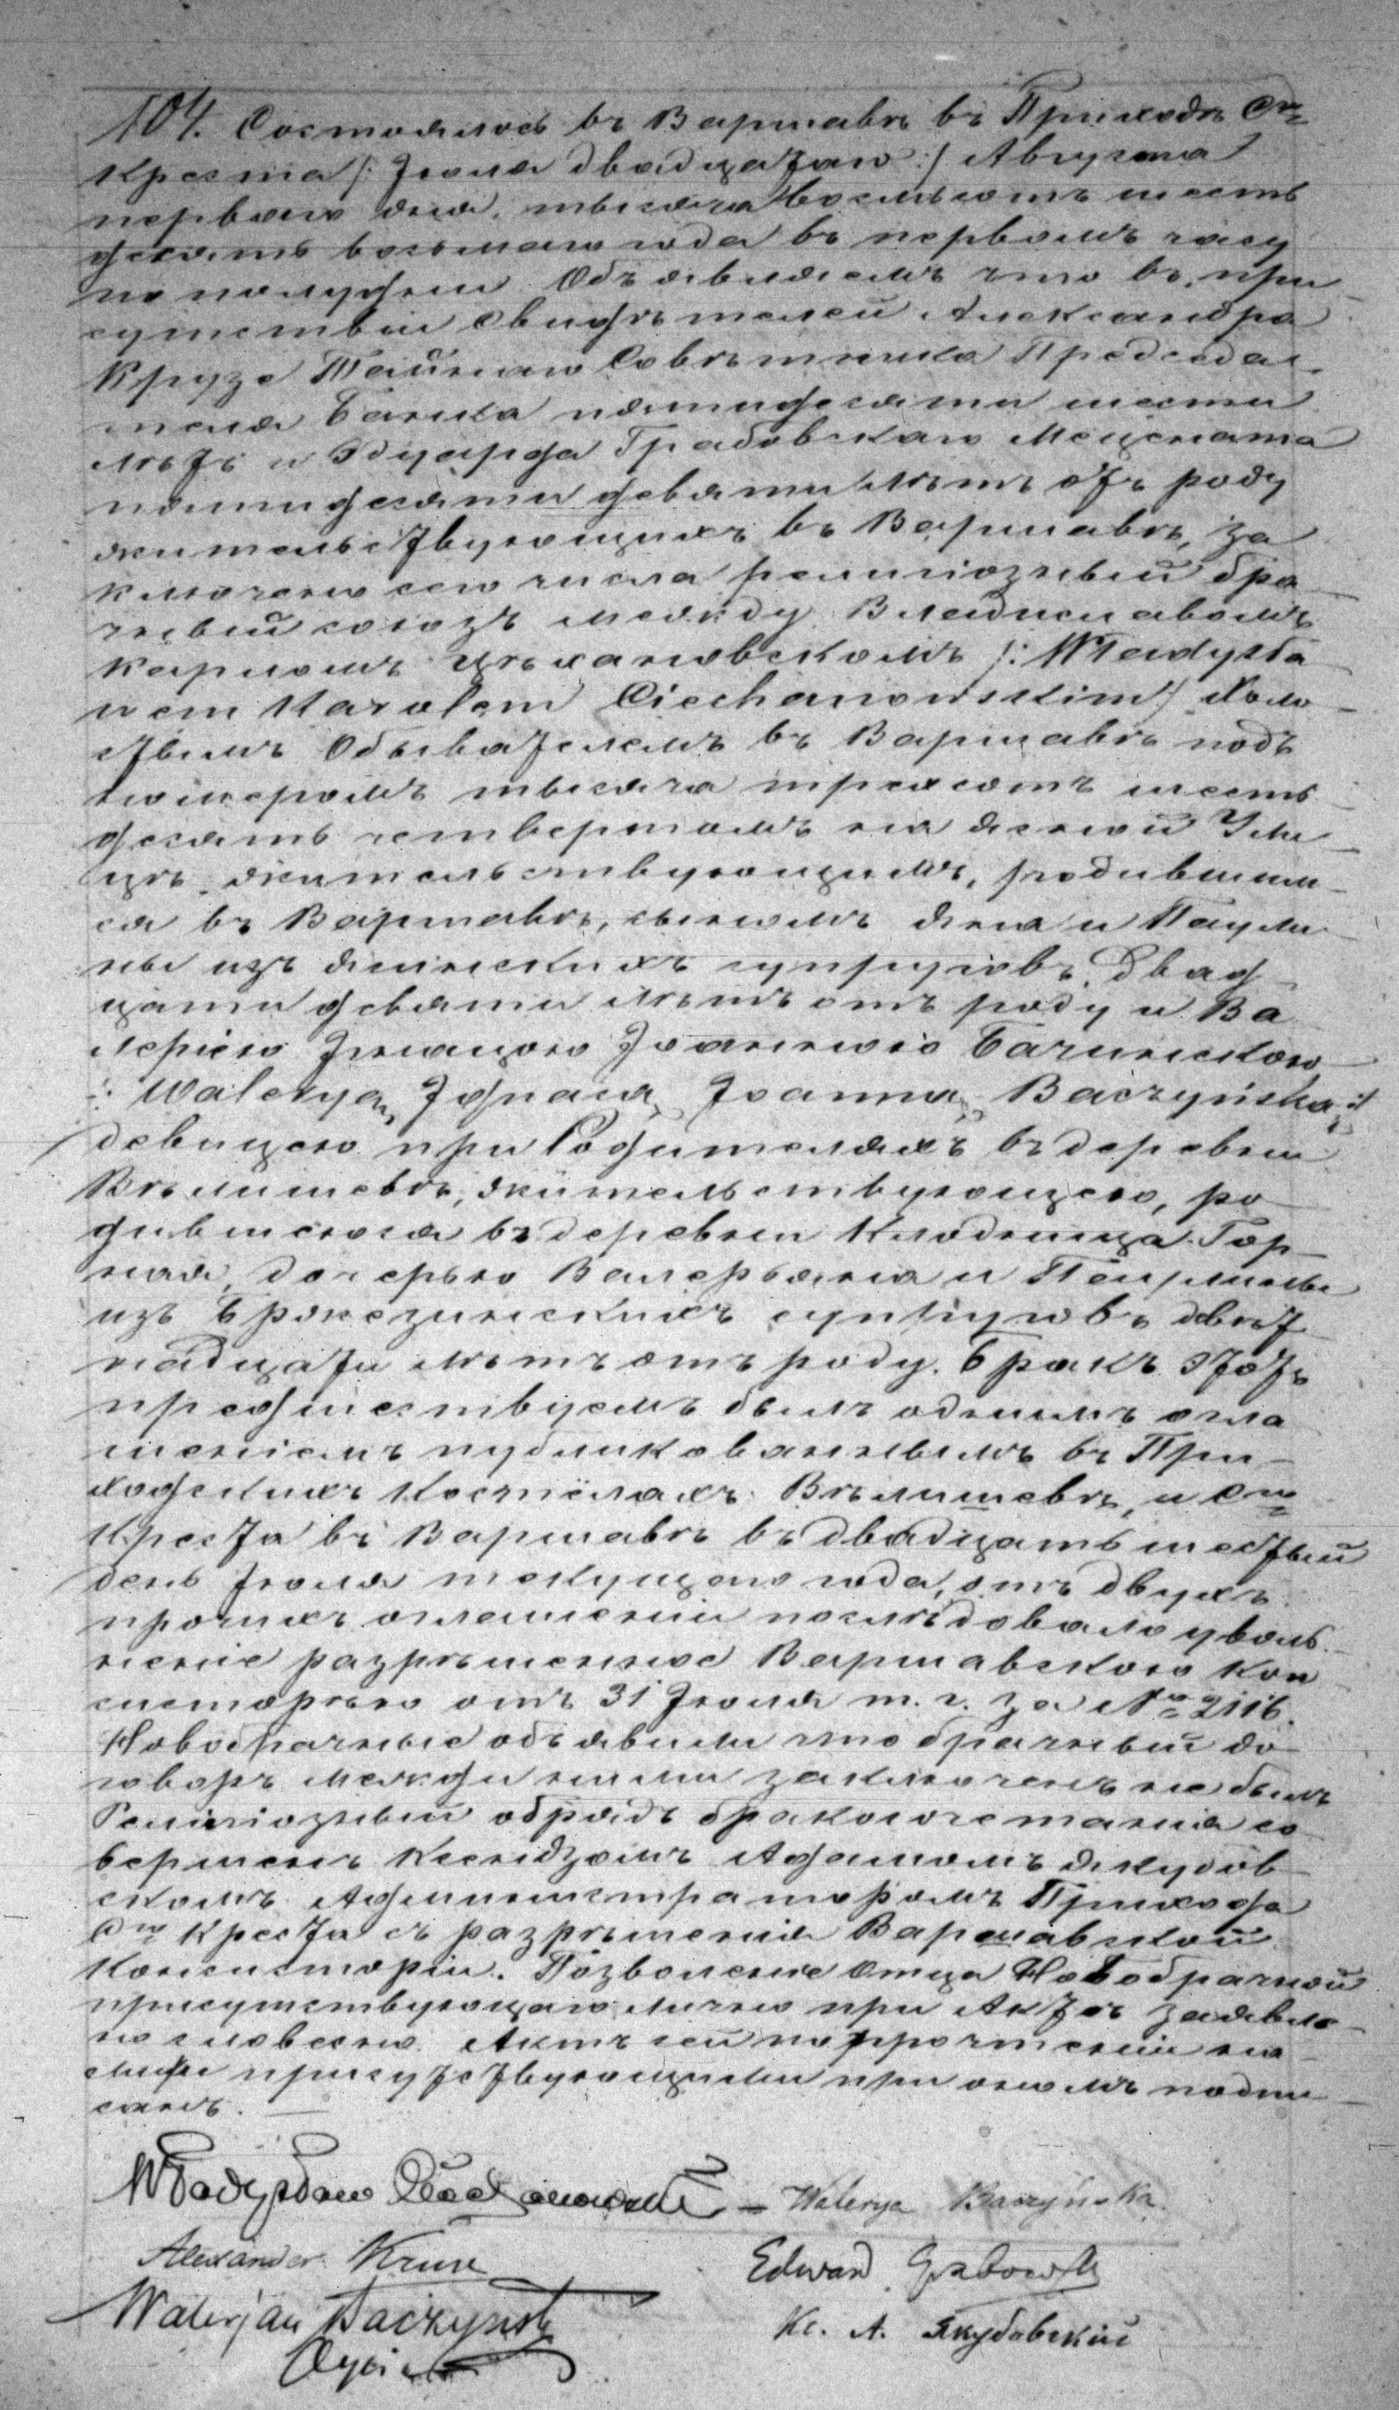 104. Состоялось въ Варшавѣ въ Приходѣ Сго
Креста /: Іюля двадцатаго :/ Августа
перваго дня, тысяча восемьсотъ шесть
десятъ восьмаго года въ первомъ часу
по полудни. Объявляемъ что въ при
сутствіи свидѣтелей Александра
Крузе Тайнаго Совѣтника Председа
теля Банка пятидесяти шести
лѣтъ и Эдуарда Грабовскаго Мецената
пятидесяти девяти лѣтъ отъ роду
жительствующихъ въ Варшавѣ, за
ключено сего числа религіозный бра
чный союзъ между Владиславомъ
Карломъ Цѣхановскимъ /: Władysła
wem Karolem Ciechanowskim :/ Холо
стымъ Обывателемъ въ Варшавѣ подъ
номеромъ тысяча трехсотъ шесть
десятъ четвертомъ на Ули
цѣ жительствующимъ, родившим
ся въ Варшавѣ, сыномъ Яна и Паули
ны изъ супруговъ, двад
цати девяти лѣтъ отъ роду и Ва
леріею Игнацою Іоанною Бачинскою
/: Waleryą Ignacą Joanną Baczyńską :/
девицею при Родителяхъ въ деревни
Вѣлишевѣ, жительствующею, ро
дившеюся въ деревни Клодница Гор
ная, дочерью Валерьяна и Паулины
изъ Бржезинскихъ супруговъ девят
надцати лѣтъ отъ роду. Бракъ этотъ
предшествуемъ былъ однимъ огла
шеніемъ публикованнымъ въ При
ходскихъ Костёлахъ Вѣлишевѣ, и Сго
Креста въ Варшавѣ въ двадцать шестый
день Іюля текущаго года, отъ двухъ
прочихъ оглашеній последовало уволь
неніе разрѣшенное Варшавскою Кон
систоріею отъ 31 Іюля т. г. за № 2116.
Новобрачные объявили что брачный до
говоръ между ними заключенъ не былъ
Религіозный обрядъ бракосочетанія со
вершенъ Ксендзомъ Адамомъ Якубов
скимъ Администраторомъ Прихода
Сго Креста съ разрѣшенія Варшавской
Консисторіи. Позволеніе Отца Новобрачной
присутствующаго лично при Актѣ заявле
но словесно. Актъ сей по прочтеніи на
ми присутствующими при ономъ подпи
санъ.
Władysław Ciechanowski – Walerya Baczyńska
Alexander Kruse Edward Grabowski
Waleryan Baczyński Кс. А. Якубовскій
Ojciec